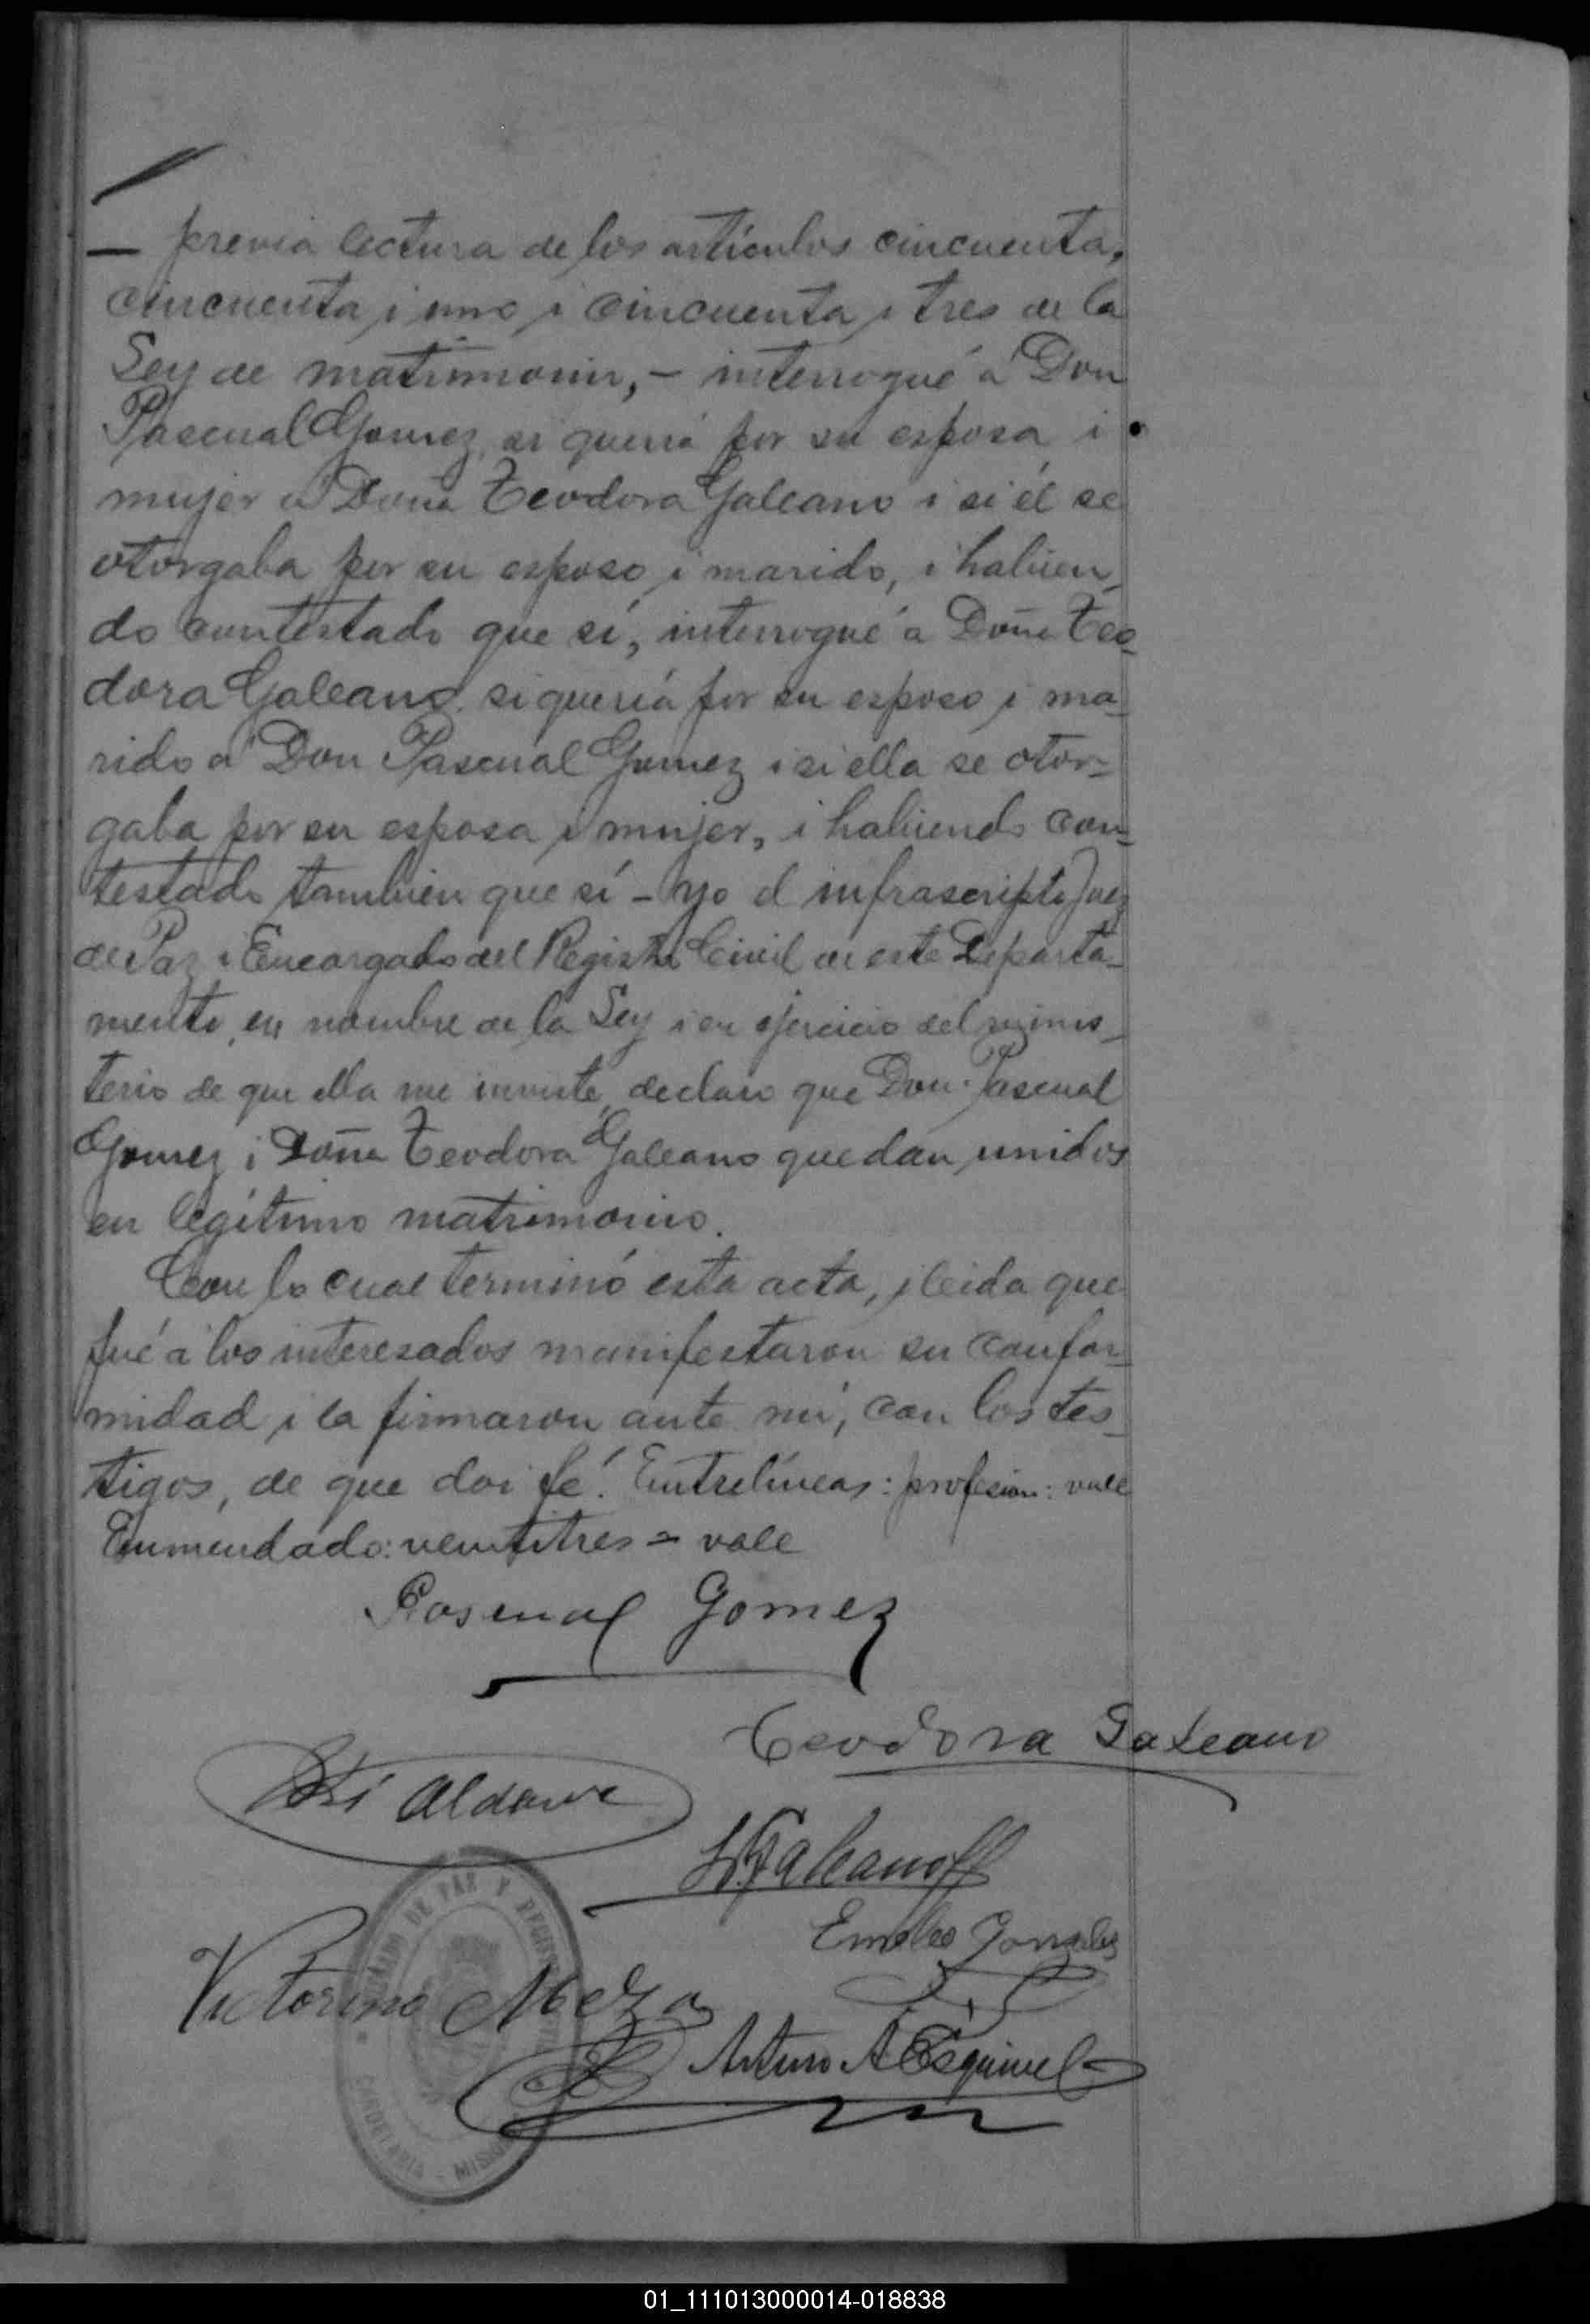 — previa lectura de los artículos cincuenta,
cincuenta i uno i cincuenta i tres de la
Ley de matrimonio, – interrogué a Don
Pascual Gomez, si quería por su esposa i
mujer a Doña Teodora Galeano i si él se
otorgaba por su esposo i marido, i habien-
do contestado que sí, interrogué a Doña Teo-
dora Galeano si quería por su esposo i ma-
rido a Don Pascual Gomez i si ella se otor-
gaba por su esposa i mujer, i habiendo con-
testado tambien que sí – yo el infrascripto Juez
de Paz i Encargado del Registro Civil de este Departa-
mento, en nombre de la Ley i en ejercicio del minis-
terio de que ella me inviste, declaro que Don Pascual
Gomez i Doña Teodora Galeano quedan unidos
en legítimo matrimonio.
Con lo cual terminó esta acta, i leida que
fué a los interesados manifestaron su confor-
midad i la firmaron ante mí, con los tes-
tigos, de que doi fé. Entrelíneas: profesion: vale
Enmendado: veintitres = vale
Pascual Gomez
Teodora Galeano
Galeano
Victorino Meza
Emilio Gonzalez
Arturo A Esquivel
JUZGADO DE PAZ Y REGISTRO
CANDELARIA - MISIONES
01_111013000014-018838